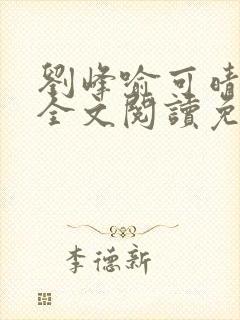 劉峰喻可晴
全文閱讀免
李德新